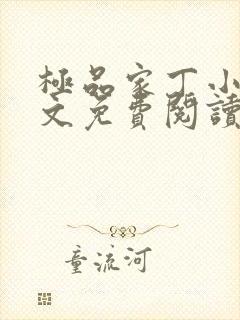 極品家丁小
文免費閱讀
童流河